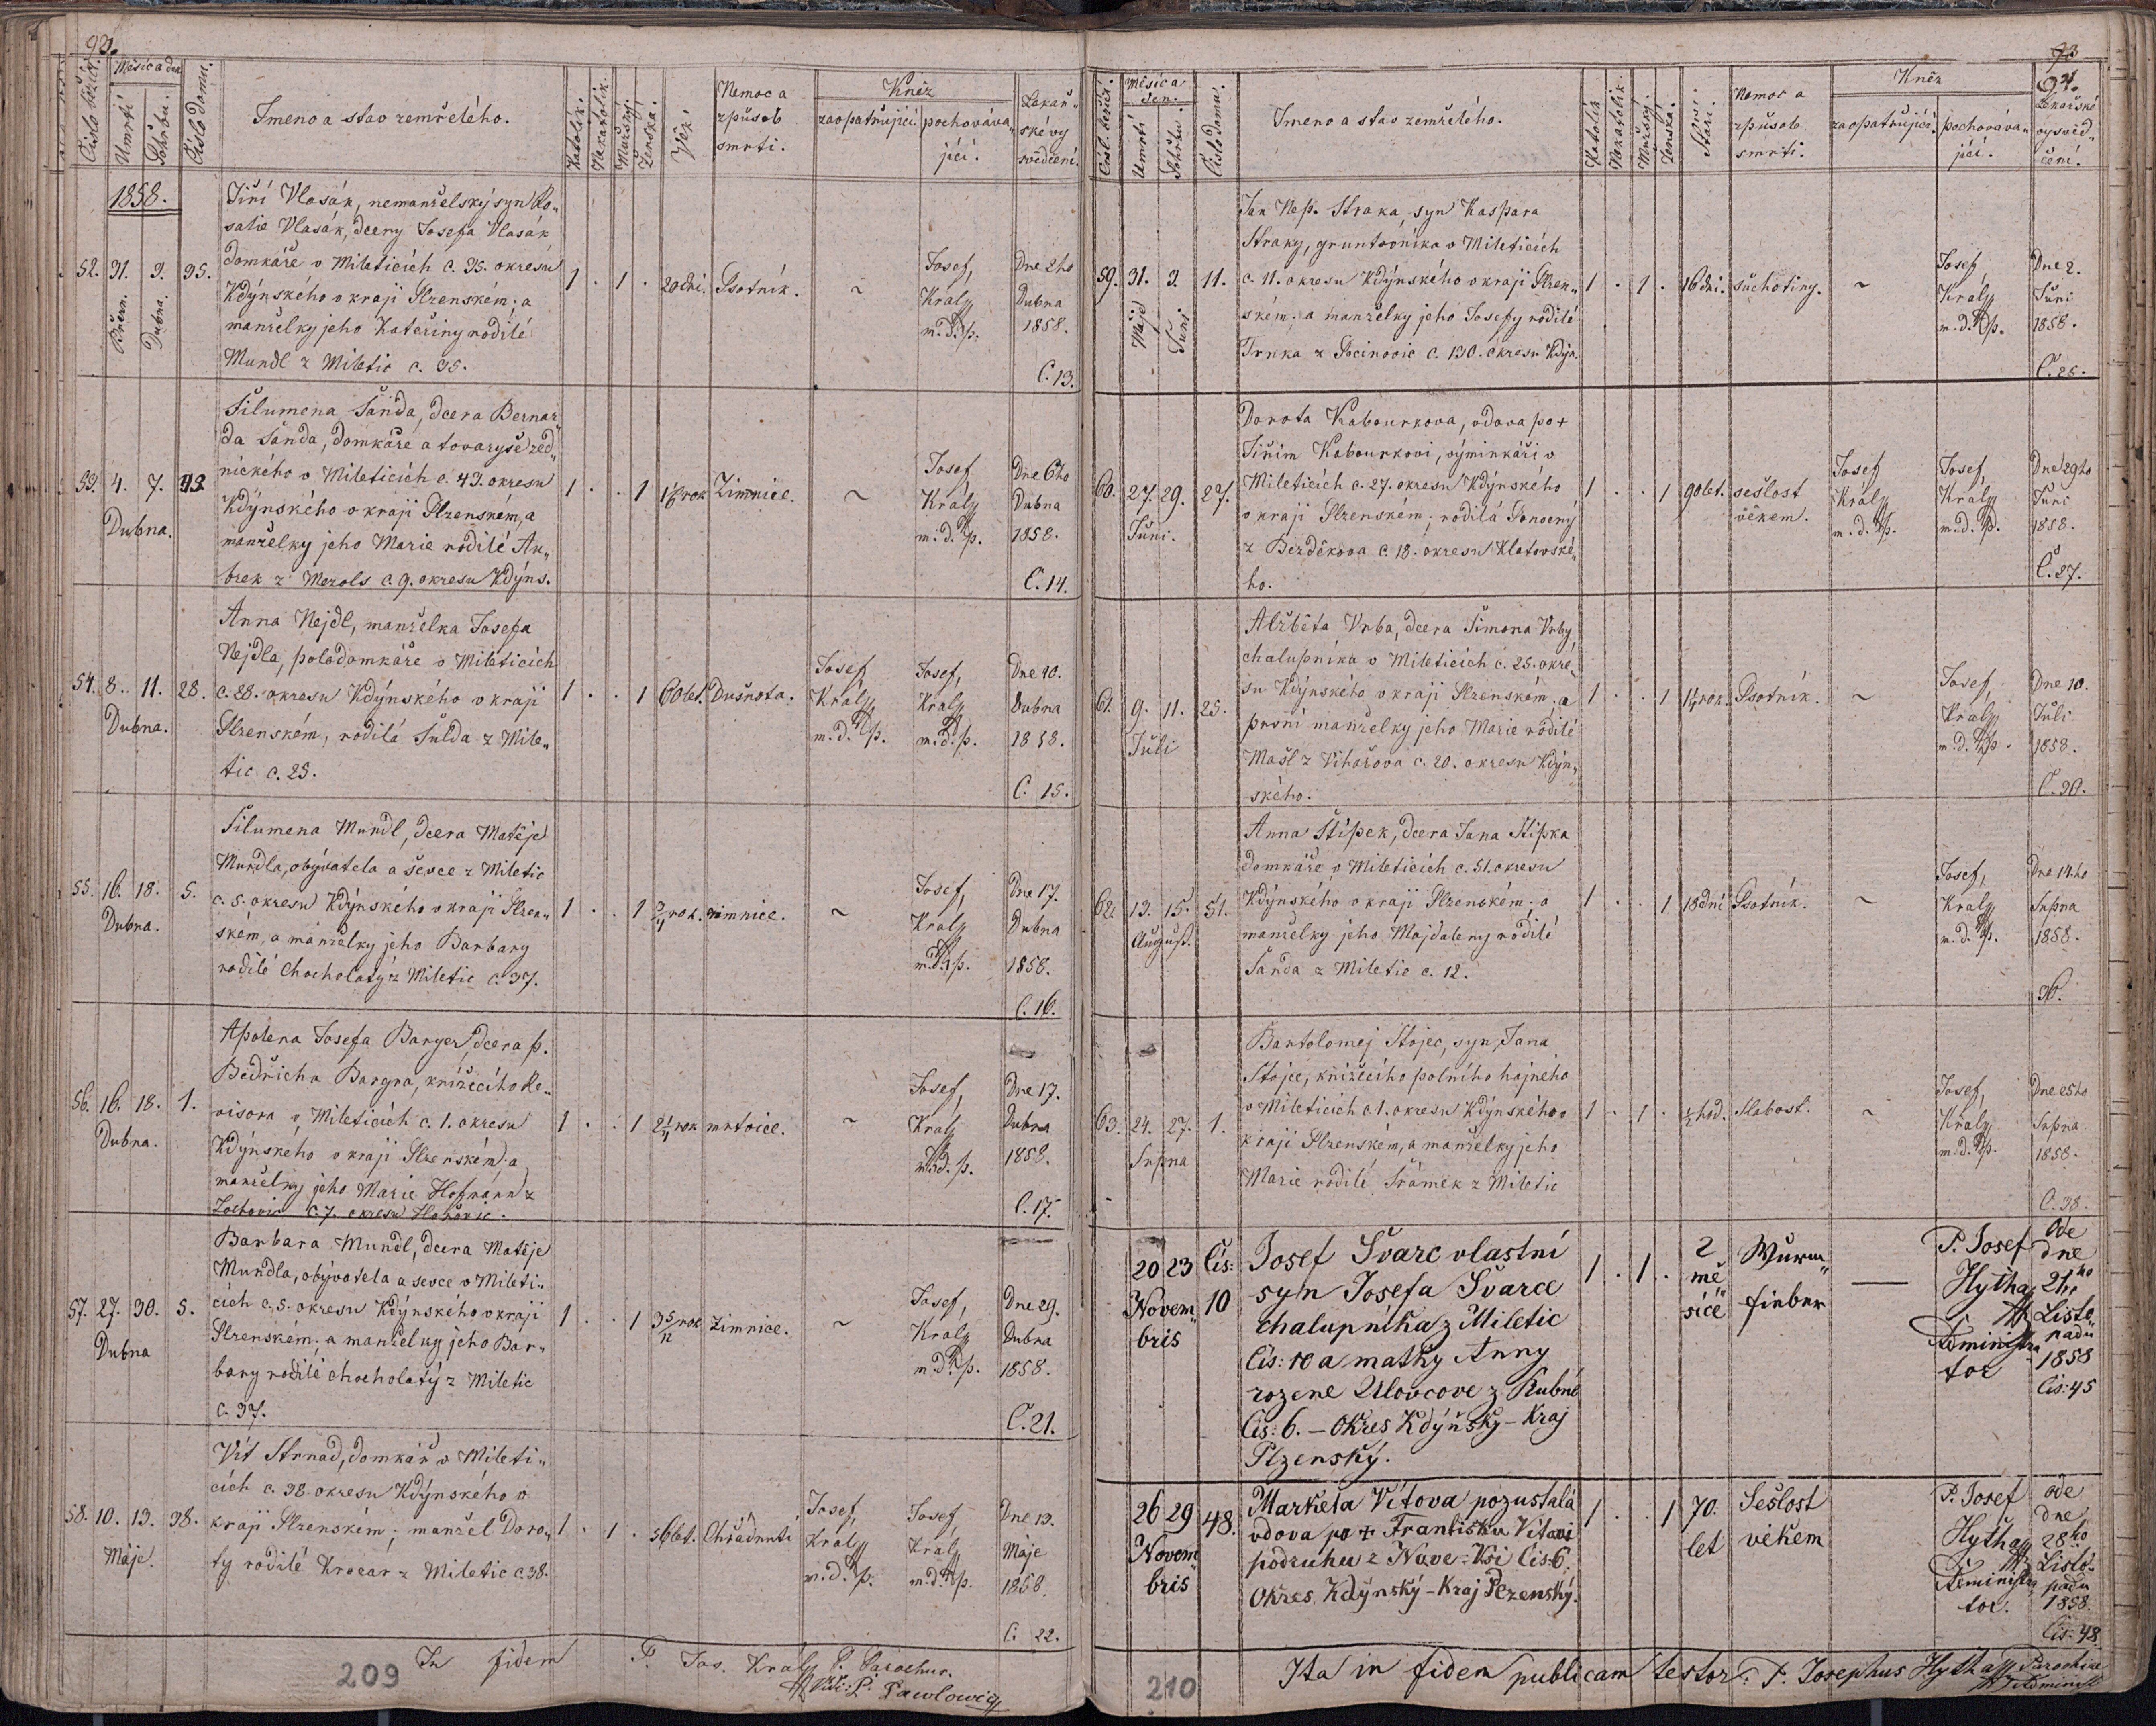 92.
Číslo běžící.
Měsíc a den
Umrtí
Pohřbu.
Číslo domu.
Jmeno a stav zemřelého.
Katolík.
Nekatolik.
Mužský.
Ženská.
Věk
Nemoc a
způsob
smrti.
Kněz
zaopatřující
pochováva„
jící.
Lékař„
ské vy
svědčení.
1858.
52. 31. 3. 95.
Březn. Dubna.
Jiří Vlasák, nemanželský syn Ro„
salie Vlasák, dcery Josefa Vlasák
domkáře v Mileticích c. 95. okresu
Kdýnského v kraji Plzenském; a
manželky jeho Kateřiny rodilé
Mundl z Miletic c. 35.
1 . 1 . 20 dní. Psotník. ~
Josef,
Králý
m. d. p.
Dne 2ho
Dubna
1858.
C. 13.
53. 4. 7. 43
Dubna.
Filumena Šanda, dcera Bernar„
da Šanda, domkáře a tovaryše zed„
nického v Mileticích c. 43. okresu
Kdýnského v kraji Plzenském, a
manželky jeho Marie rodilé An„
brek z Mezols c. 9. okresu Kdýns.
1 . . 1 rok Zimnice. ~
Josef,
Králý
m. d. p.
Dne 6ho
Dubna
1858.
C. 14.
54. 8. 11. 28.
Dubna.
Anna Nejdl, manželka Josefa
Nejdla, polodomkáře v Mileticích
c. 28. okresu Kdýnského v kraji
Plzenském, rodilá Šulda z Mile„
tic c. 25.
1 . . 1 60 let. Dušnota.
Josef,
Králý
m. d. p.
Josef,
Králý
m. d. p.
Dne 10.
Dubna
1858.
C. 15.
55. 16. 18. 5.
Dubna.
Filumena Mundl, dcera Matěje
Mundla, obývatela a ševce z Miletic
c. 5. okresu Kdýnského v kraji Plzen„
ském, a manželky jeho Barbary
rodilé Chocholatý z Miletic c. 37.
1 . . 1 rok. zimnice. ~
Josef,
Králý
m. d. p.
Dne 17.
Dubna
1858.
C. 16.
56. 16. 18. 1.
Dubna.
Apolena Josefa Barger, dcera p.
Bedřicha Bargra, knížecího Re„
visora v Mileticích c. 1. okresu
Kdýnského v kraji Plzenském; a
manželky jeho Marie Hofmann z
c. 7. okresu
1 . . 1 2¼ rok mrtvice. ~
Josef,
Králý
m. d. p.
Dne 17.
Dubna
1858.
C. 17.
57. 27. 30. 5.
Dubna
Barbara Mundl, dcera Matěje
Mundla, obývatela a sevce v Mileti„
cích c. 5. okresu Kdýnského v kraji
Plzenském; a manželky jeho Bar„
bary rodilé Chocholatý z Miletic
c. 37.
1 . . 1 rok Zimnice. ~
Josef,
Králý
m. d. p.
Dne 29.
Dubna
1858.
C. 21.
58. 10. 13. 38.
Máje.
Vít Strnad, domkář v Mileti„
cích c. 38. okresu Kdýnského v
kraji Plzenském; manžel Doro„
ty rodilé Krocar z Miletic c. 38.
1 . 1 . 56 let. Chřadnutí
Josef,
Králý
m. d. p.
Josef
Králý
m. d. p.
Dne 13.
Máje
1858.
C. 22.
In fidem P. Jos. Králý P. Parochus.
Vidi: P. Pawlowicz
209
93
94.
Čísl. běžící.
Měsíc a
den.
Umrtí
Pohřbu.
Číslo domu.
Jmeno a stav zemřelého.
Katolík
Nekatolík.
Mužský.
Ženská.
Stáří.
Nemoc a
způsob
smrti.
Kněz
zaopatřující.
pochováva„
jící.
Lékařské
vysvěd„
čení.
59. 31. 3. 11.
Máje Juni
Jan Nep. Straka, syn Kaspara
Straky, gruntovníka v Mileticích
c. 11. okresu Kdýnského v kraji Plzen„
ském; a manželky jeho Josefy rodilé
Trnka z Pocinovic c. 130. okresu Kdýn.
1 . 1 . 16 dní. suchotiny. ~
Josef,
Králý
m. d. p.
Dne 2.
Juni
1858.
C. 25.
60. 27. 29. 27.
Juni.
Dorota Kabourkova, vdova po +
Jiřím Kabourkovi, výminkáři v
Mileticích c. 27. okresu Kdýnského
v kraji Plzenském; rodilá
z Bezděkova c 18. okresu Klatovské„
ho.
1 . . 1 90 let. sešlost
věkem.
Josef
Králý
m. d. p.
Josef,
Králý
m. d. p.
Dne 29ho
Juni
1858.
C. 27.
61. 9. 11. 25.
Juli
Alžběta Vrba, dcera Šimona Vrby
chalupníka v Mileticích c. 25. okre„
su Kdýnského v kraji Plzenském; a
první manželky jeho Marie rodilé
Mašl z Vihařova c. 20. okresu Kdýn„
ského.
1 . . 1 rok. Psotník. ~
Josef,
Králý
m. d. p.
Dne 10.
Juli
1858.
C. 30.
62. 13. 15. 51.
August.
Anna Štípek, dcera Jana Štípka
domkáře v Mileticích c. 51. okresu
Kdýnského v kraji Plzenském; a
manželky jeho Majdaleny rodilé
Šanda z Miletic c. 12.
1 . . 1 18 dní Psotník. ~
Josef,
Králý
m. d. p.
Dne 14ho
Srpna
1858.
36.
63. 24. 27. 1.
Srpna
Bartolomej Stojec, syn Jana
Stojce, knížecího polního hajného
v Mileticích c. 1. okresu Kdýnského v
kraji Plzenském, a manželky jeho
Marie rodilé Šrámek z Miletic
1 . 1 . ½ hod. Slabost. ~
Josef,
Králý
m. d. p.
Dne 25ho
Srpna
1858.
C. 38.
20 23 Čis:
Novem„ 10
bris
Josef Švarc vlastní
syn Josefa Švarce
chalupníka z Miletic
Čis: 10 a matky Anny
rozene Ulovcove z Hubne
Čis: 6. – Okres Kdýňský – Kraj
Plzenský.
1 . 1 . 2
mě„
síce
Wurm„
fieber
—
P. Josef
Hytha
Administra„
tor
Ode
dne
21ho
Listo„
padu
1858
Čis: 45
26 29 48.
Novem„
bris
Marketa Vítova pozustalá
vdova po + Františku Vítovi
podruhu z Nove-Vsi Čis: 6.
Okres Kdýnský – Kraj Plzenský.
1 . . 1 70.
let
Sešlost
věkem
P. Josef
Hytha
Administra„
tor.
ode
dne
28ho
Listo„
padu
1858.
Čis: 48
Ita in fidem publicam testor: P. Josephus Hytha Parochiae
Administ.
210